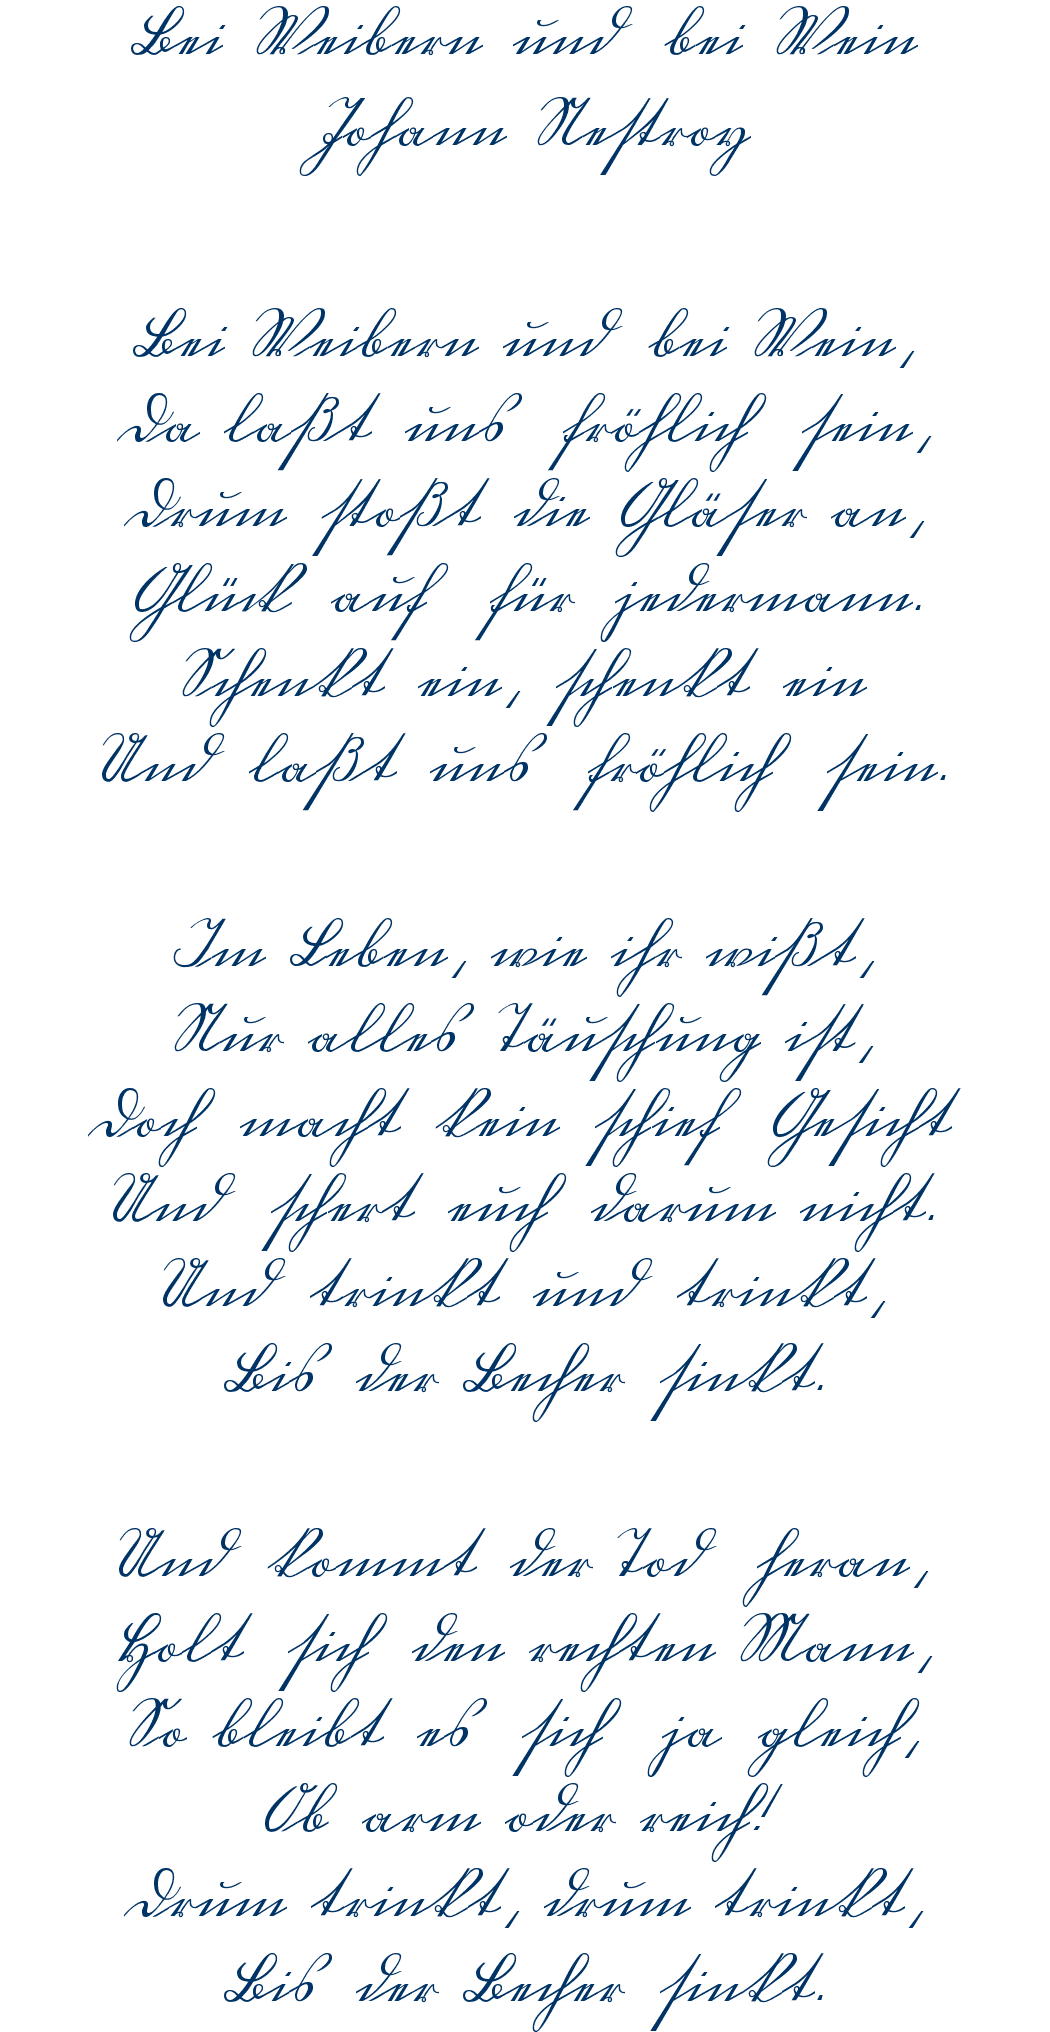 Bei Weibern und bei Wein
Johann Nestroy
Bei Weibern und bei Wein,
Da laßt uns fröhlich sein,
Drum stoßt die Gläser an,
Glück auf für jedermann.
Schenkt ein, schenkt ein
Und laßt uns fröhlich sein.
Im Leben, wie ihr wißt,
Nur alles Täuschung ist,
Doch macht kein schief Gesicht
Und schert euch darum nicht.
Und trinkt und trinkt,
Bis der Becher sinkt.
Und kommt der Tod heran,
Holt sich den rechten Mann,
So bleibt es sich ja gleich,
Ob arm oder reich!
Drum trinkt, drum trinkt,
Bis der Becher sinkt.